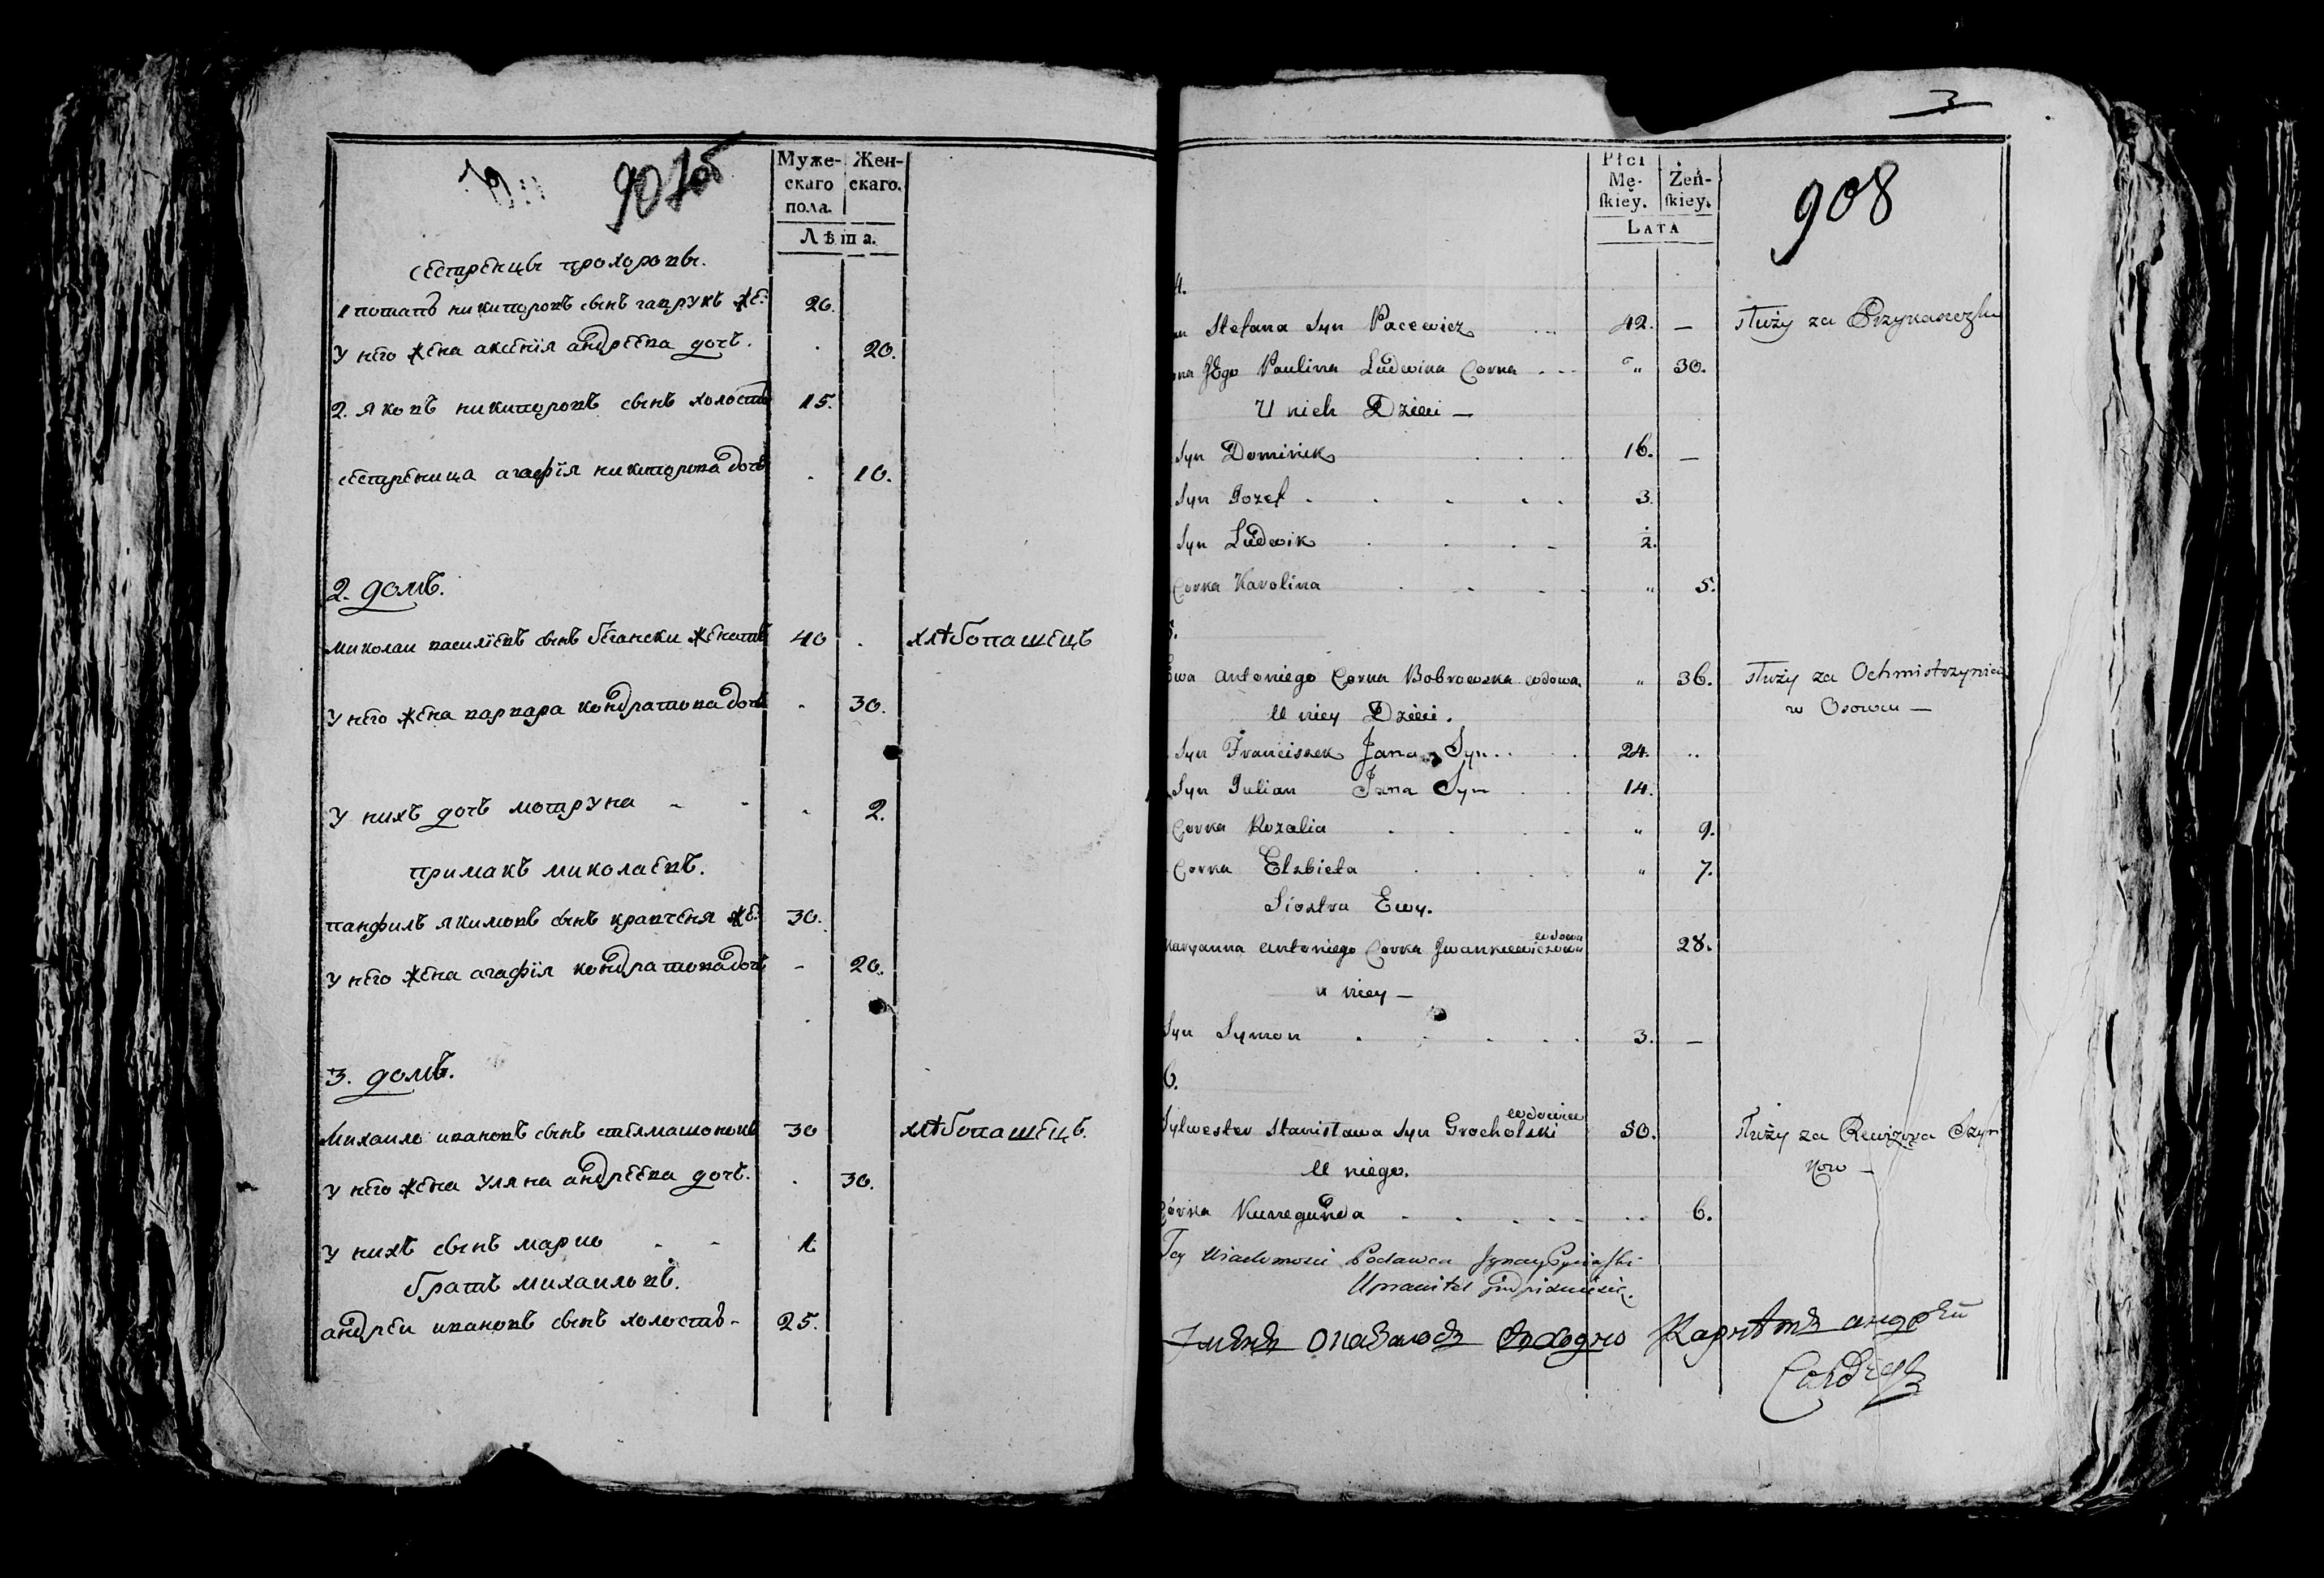 907об
Муже- Жен-
скаго скаго.
пола.
Лѣта.
сестренцы прохоровы.
1 потапъ никипоровъ сынъ гаврукъ же: 20.
у него жена аксенїя андреева дочь. 20.
2. яковъ никипоровъ сынъ холостъ 15.
сестреница агафїя никипорова дочь 10.
2. домъ.
миколаи василїевъ сынъ бегански женатъ 40 хлѣбопашецъ
у него жена варвара кондратова дочь 30.
у нихъ дочь мотруна 2.
примакъ миколаевъ.
панфилъ якимовъ сынъ кравченя же: 30.
у него жена агафїя кондратова дочь 20.
3. домъ.
михаило ивановъ сынъ стелмашоновъ 30 хлѣбопашецъ.
у него жена уляна андреева дочь. 30.
у нихъ сынъ марко 1.
братъ михаиловъ.
андреи ивановъ сынъ холостъ 25.
3
Płci
Mę- Żeń-
ſkiey. ſkiey.
LATA
908
4.
Stefana Syn Pacewicz 42. — służy za
Jego Paulina Ludwika Corka „ 30.
U nich Dzieci —
Syn Dominik 16. —
Syn Jozef 3.
Syn Ludwik 2.
Corka Karolina „ 5.
5.
Ewa Antoniego Corka Bobrowska wdowa. „ 36. służy za Ochmistrzynie
U niey Dzieci. w Osowcu —
Syn Franciszek Jana Syn 24. „
Syn Julian Jana Syn 14.
Corka Rozalia „ 9.
Corka Elzbieta „ 7.
Siostra Ewy.
wdowa
Maryanna Antoniego Corka Jwankiewiczowa 28.
u niey —
Syn Symon 3. —
6.
wdowiec
Sylwester Stanisława Syn Grocholski 50. służy za Rewizora
U niego.
Córka Kunegunda 6.
Tey Wiadomości Podawca